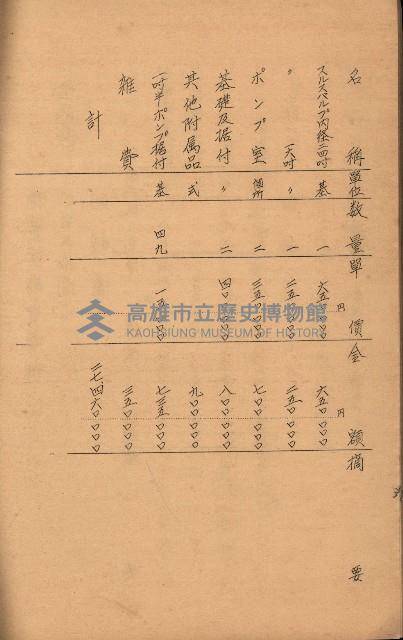 名稱 單位 數量 單價 金額 摘要
スルスバルブ内径二四吋 基 一 六五〇〇〇〇円 六五〇〇〇〇円
〃 〃 一 二五〇〇〇〇 二五〇〇〇〇
ポンプ室 個所 二 三五〇〇〇〇 七〇〇〇〇〇
基礎及据付 〃 二 四〇〇〇〇〇 八〇〇〇〇〇
其他附属品 式 九〇〇〇〇〇
一吋半ポンプ据付 基 四九 一五〇〇〇 七三五〇〇〇
雑費 三五〇〇〇〇
計 二七、四六〇〇〇〇
高雄市立歷史博物館
KAOHSIUNG MUSEUM OF HISTORY